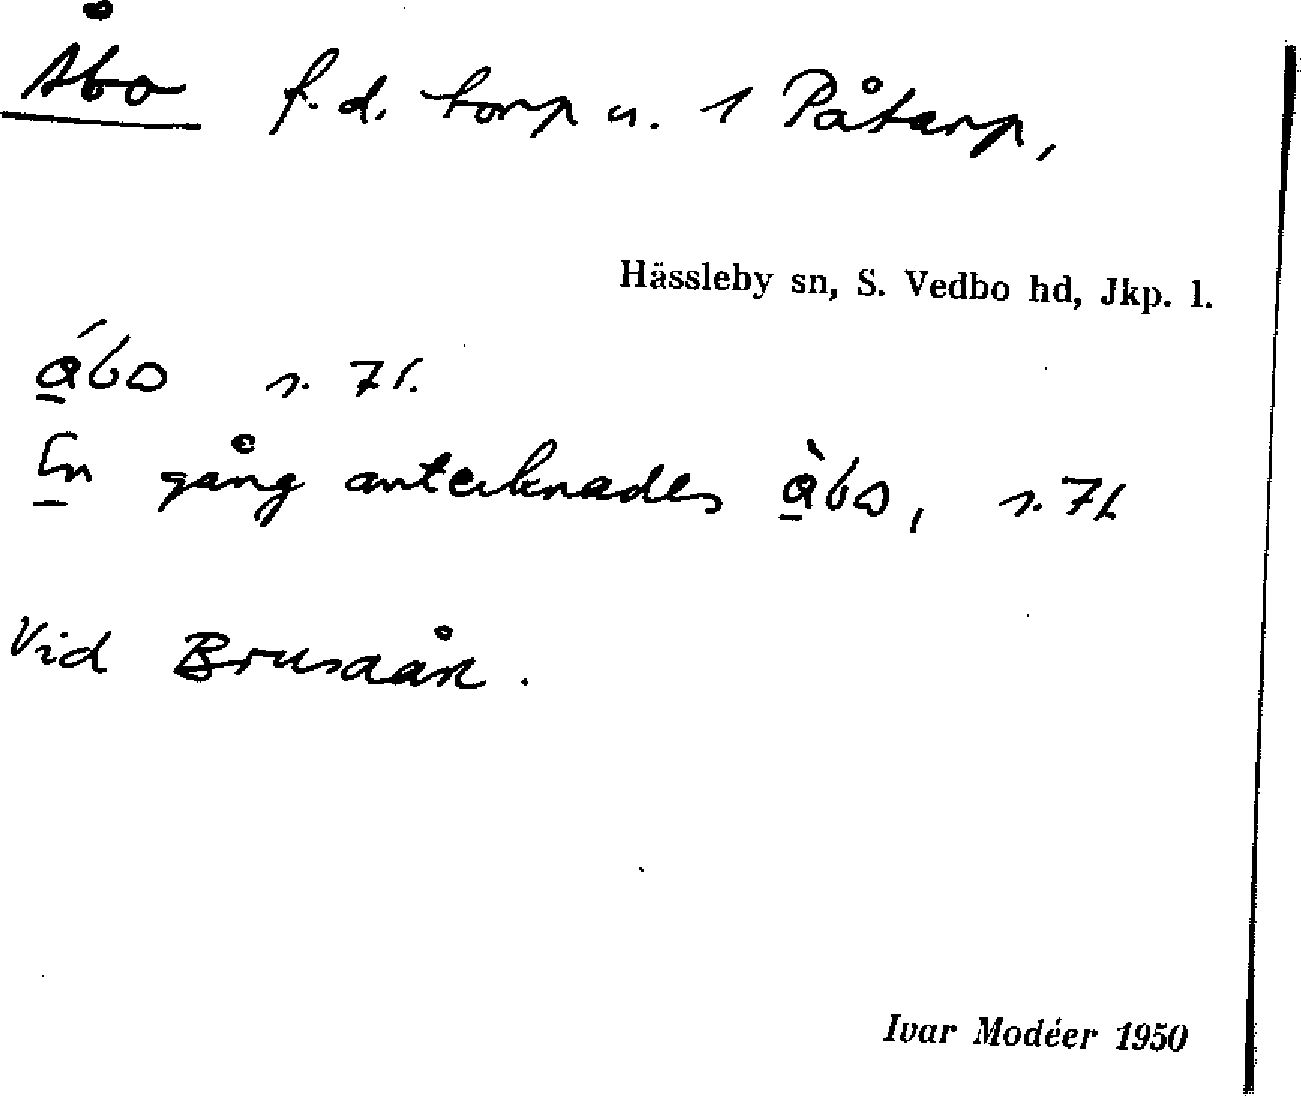 Åbo f.d. torp u. 1 Påtarp,
Hässleby sn, S. Vedbo hd, Jkp. l.
åbo s. 71.
En gång antecknades åbo, s. 71
Vid Brusaån.
Ivar Modéer 1950